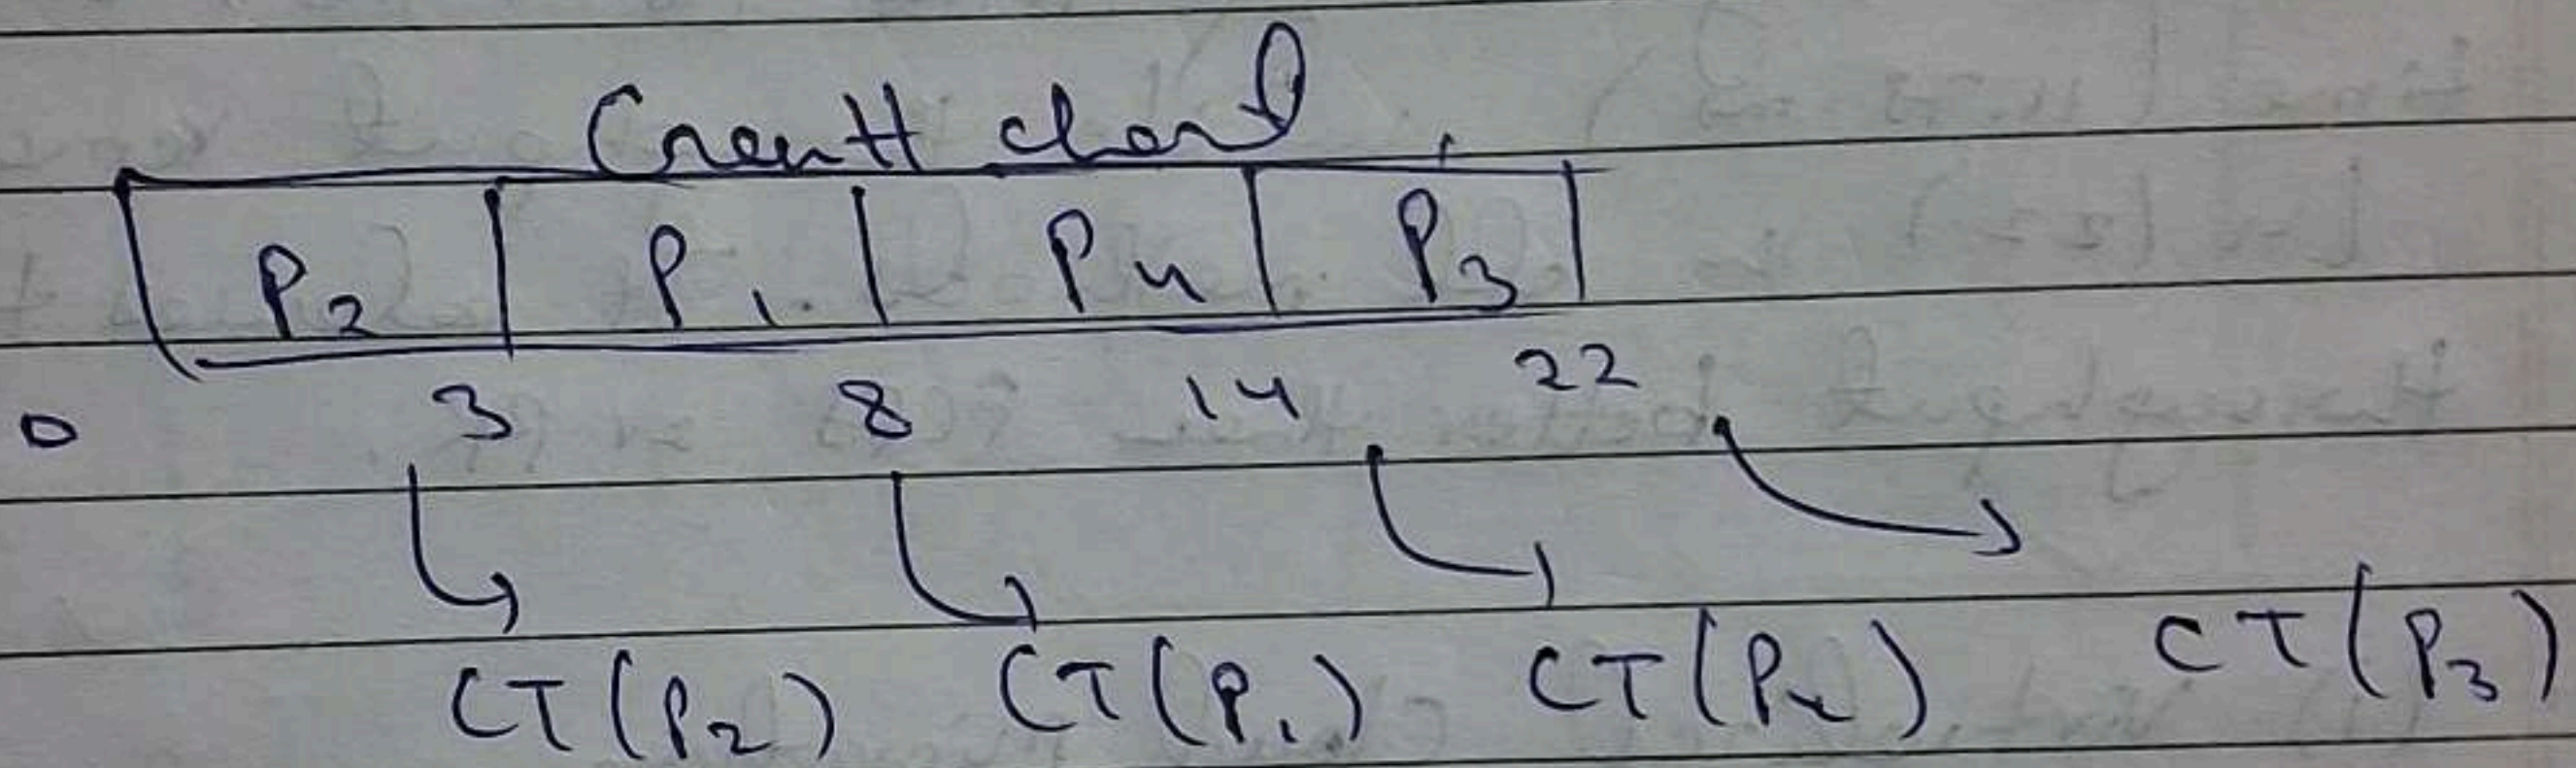 Gantt chart
P2 P1 P4 P3
0 3 8 14 22
CT(P2) CT(P1) CT(P4) CT(P3)